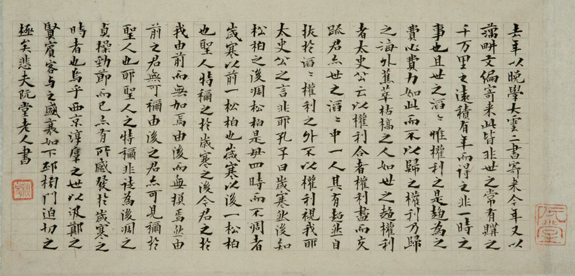 阮堂
去年以晚學大雲二書寄來今年又以
藕畊文編寄來此皆非世之常有購之
千万里之遠積有年而得之非一時之
事也且世之滔〻惟權利之是趨爲之
費心費力如此而不以歸之權利乃歸
之海外蕉萃枯槁之人如世之趨權利
者太史公云以權利合者權利盡而交
踈君亦世之滔〻中一人其有超然自
拔於滔〻權利之外不以權利視我耶
太史公之言非耶孔子曰歲寒然後知
松栢之後凋松栢是毋四時而不凋者
歲寒以前一松栢也歲寒以後一松栢
也聖人特稱之於歲寒之後今君之於
我由前而無加焉由後而無損焉然由
前之君無可稱由後之君亦可見稱於
聖人也耶聖人之特稱非徒爲後凋之
貞操勁節而已亦有所感發於歲寒之
時者也烏乎西京淳厖之世以汲鄭之
賢賓客與之盛衰如下邳榜門迫切之
極矣悲夫阮堂老人書